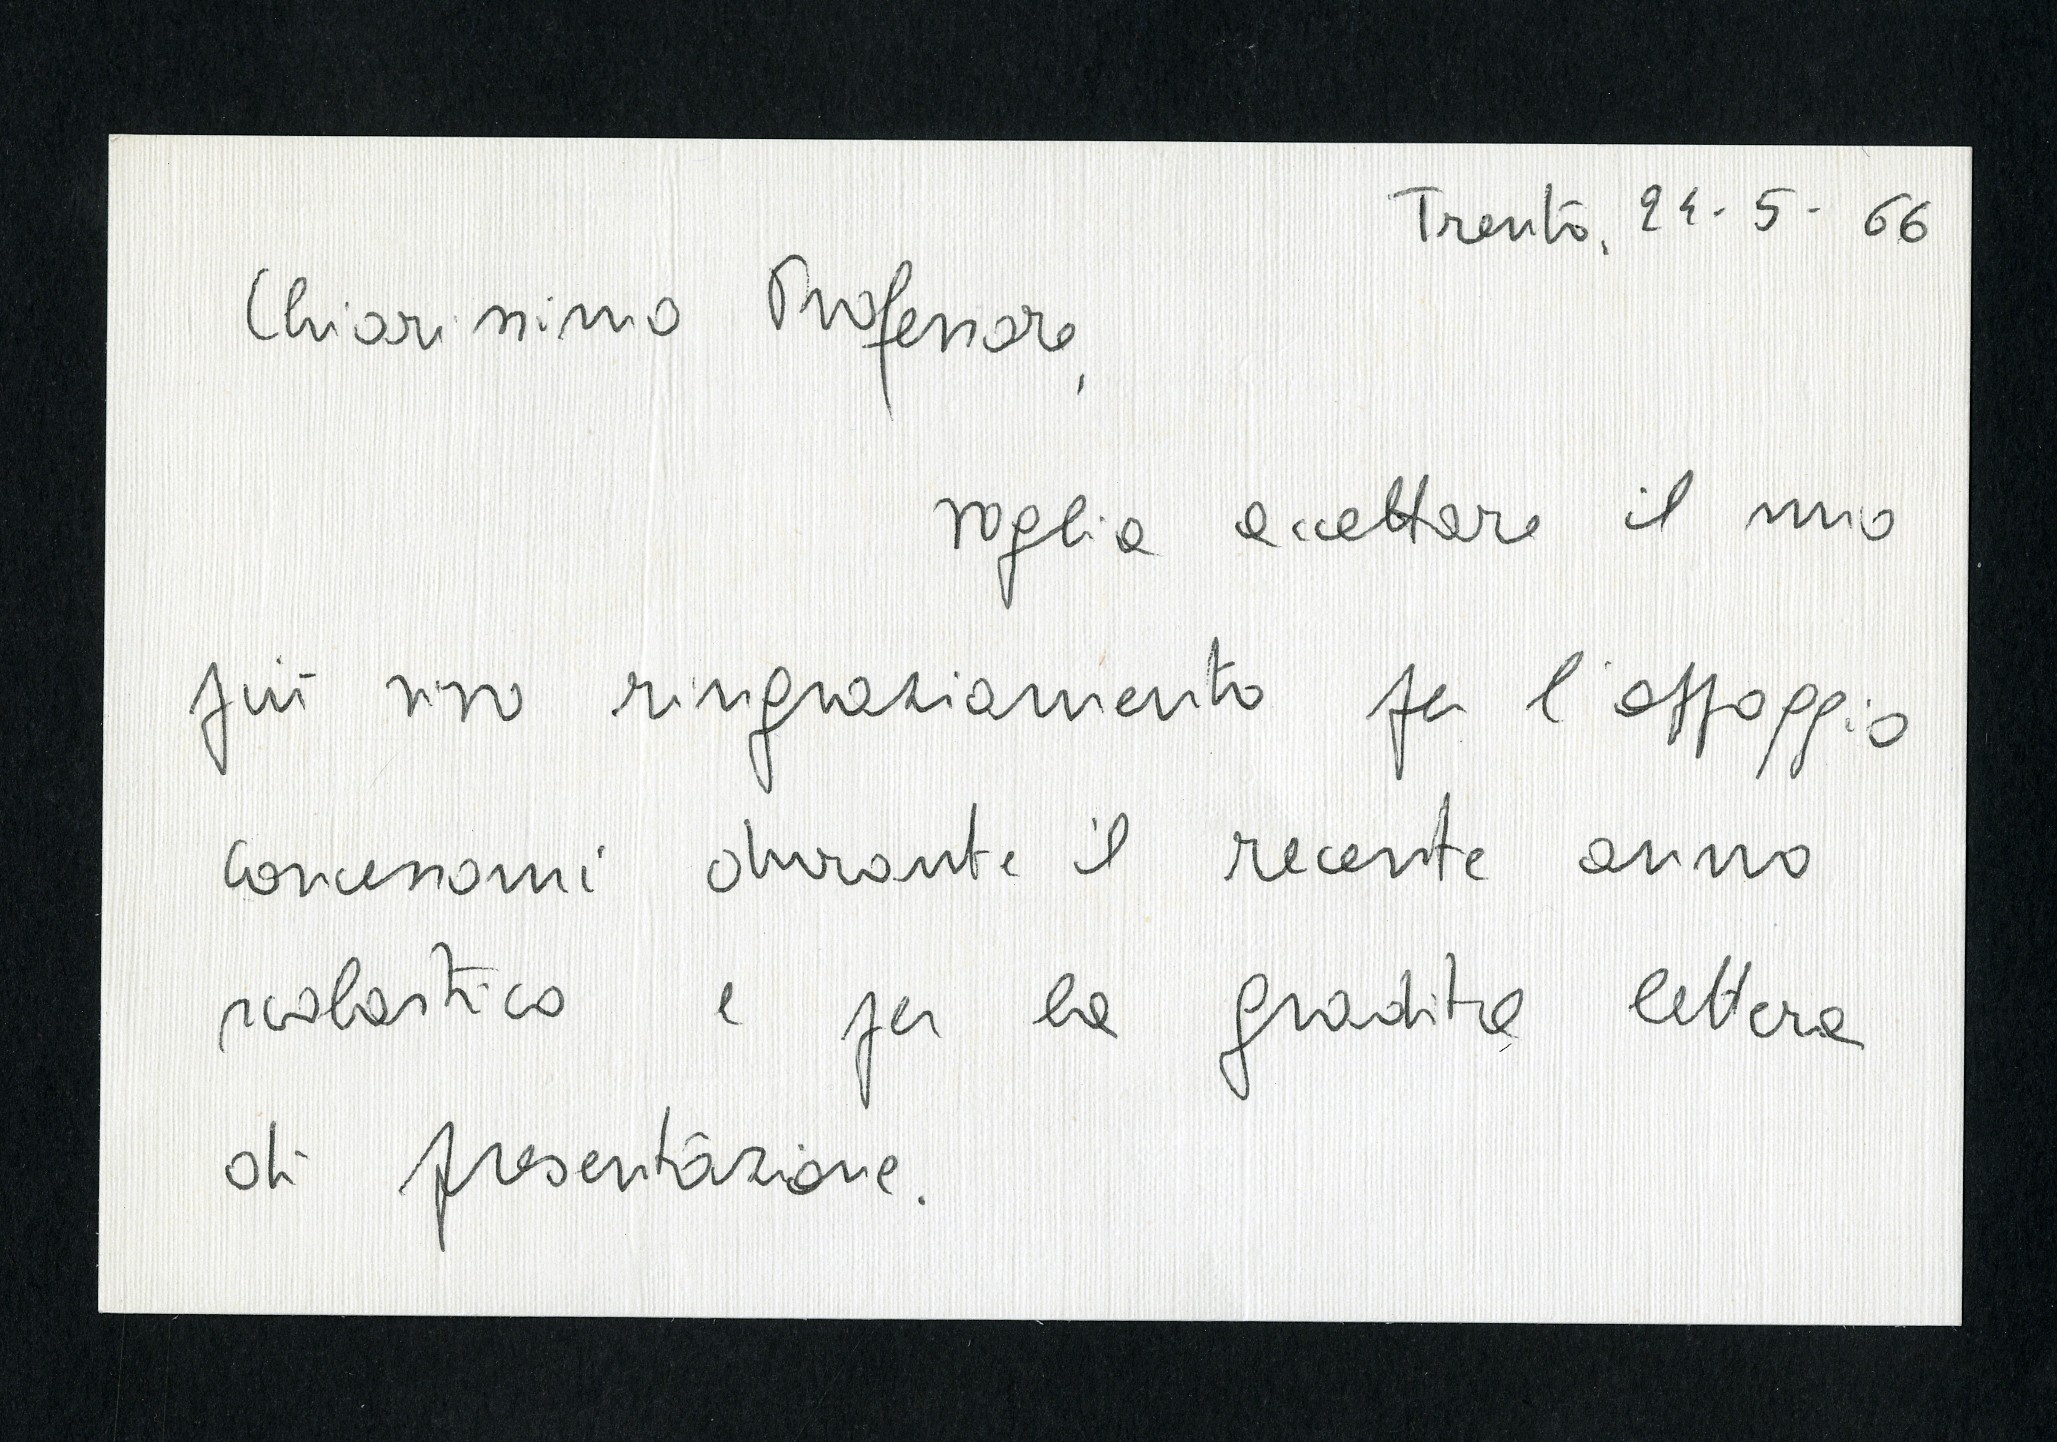 Trento, 24-5-66
Chiarissimo Professore,
voglia accettare il mio
più vivo ringraziamento per l'appoggio
concessomi durante il recente anno
scolastico e per la gradita lettera
di presentazione.